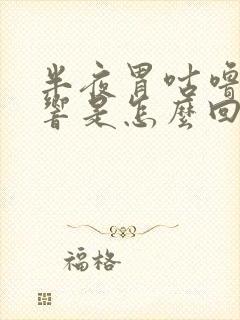 半夜胃咕嚕
響是怎麼回
福格